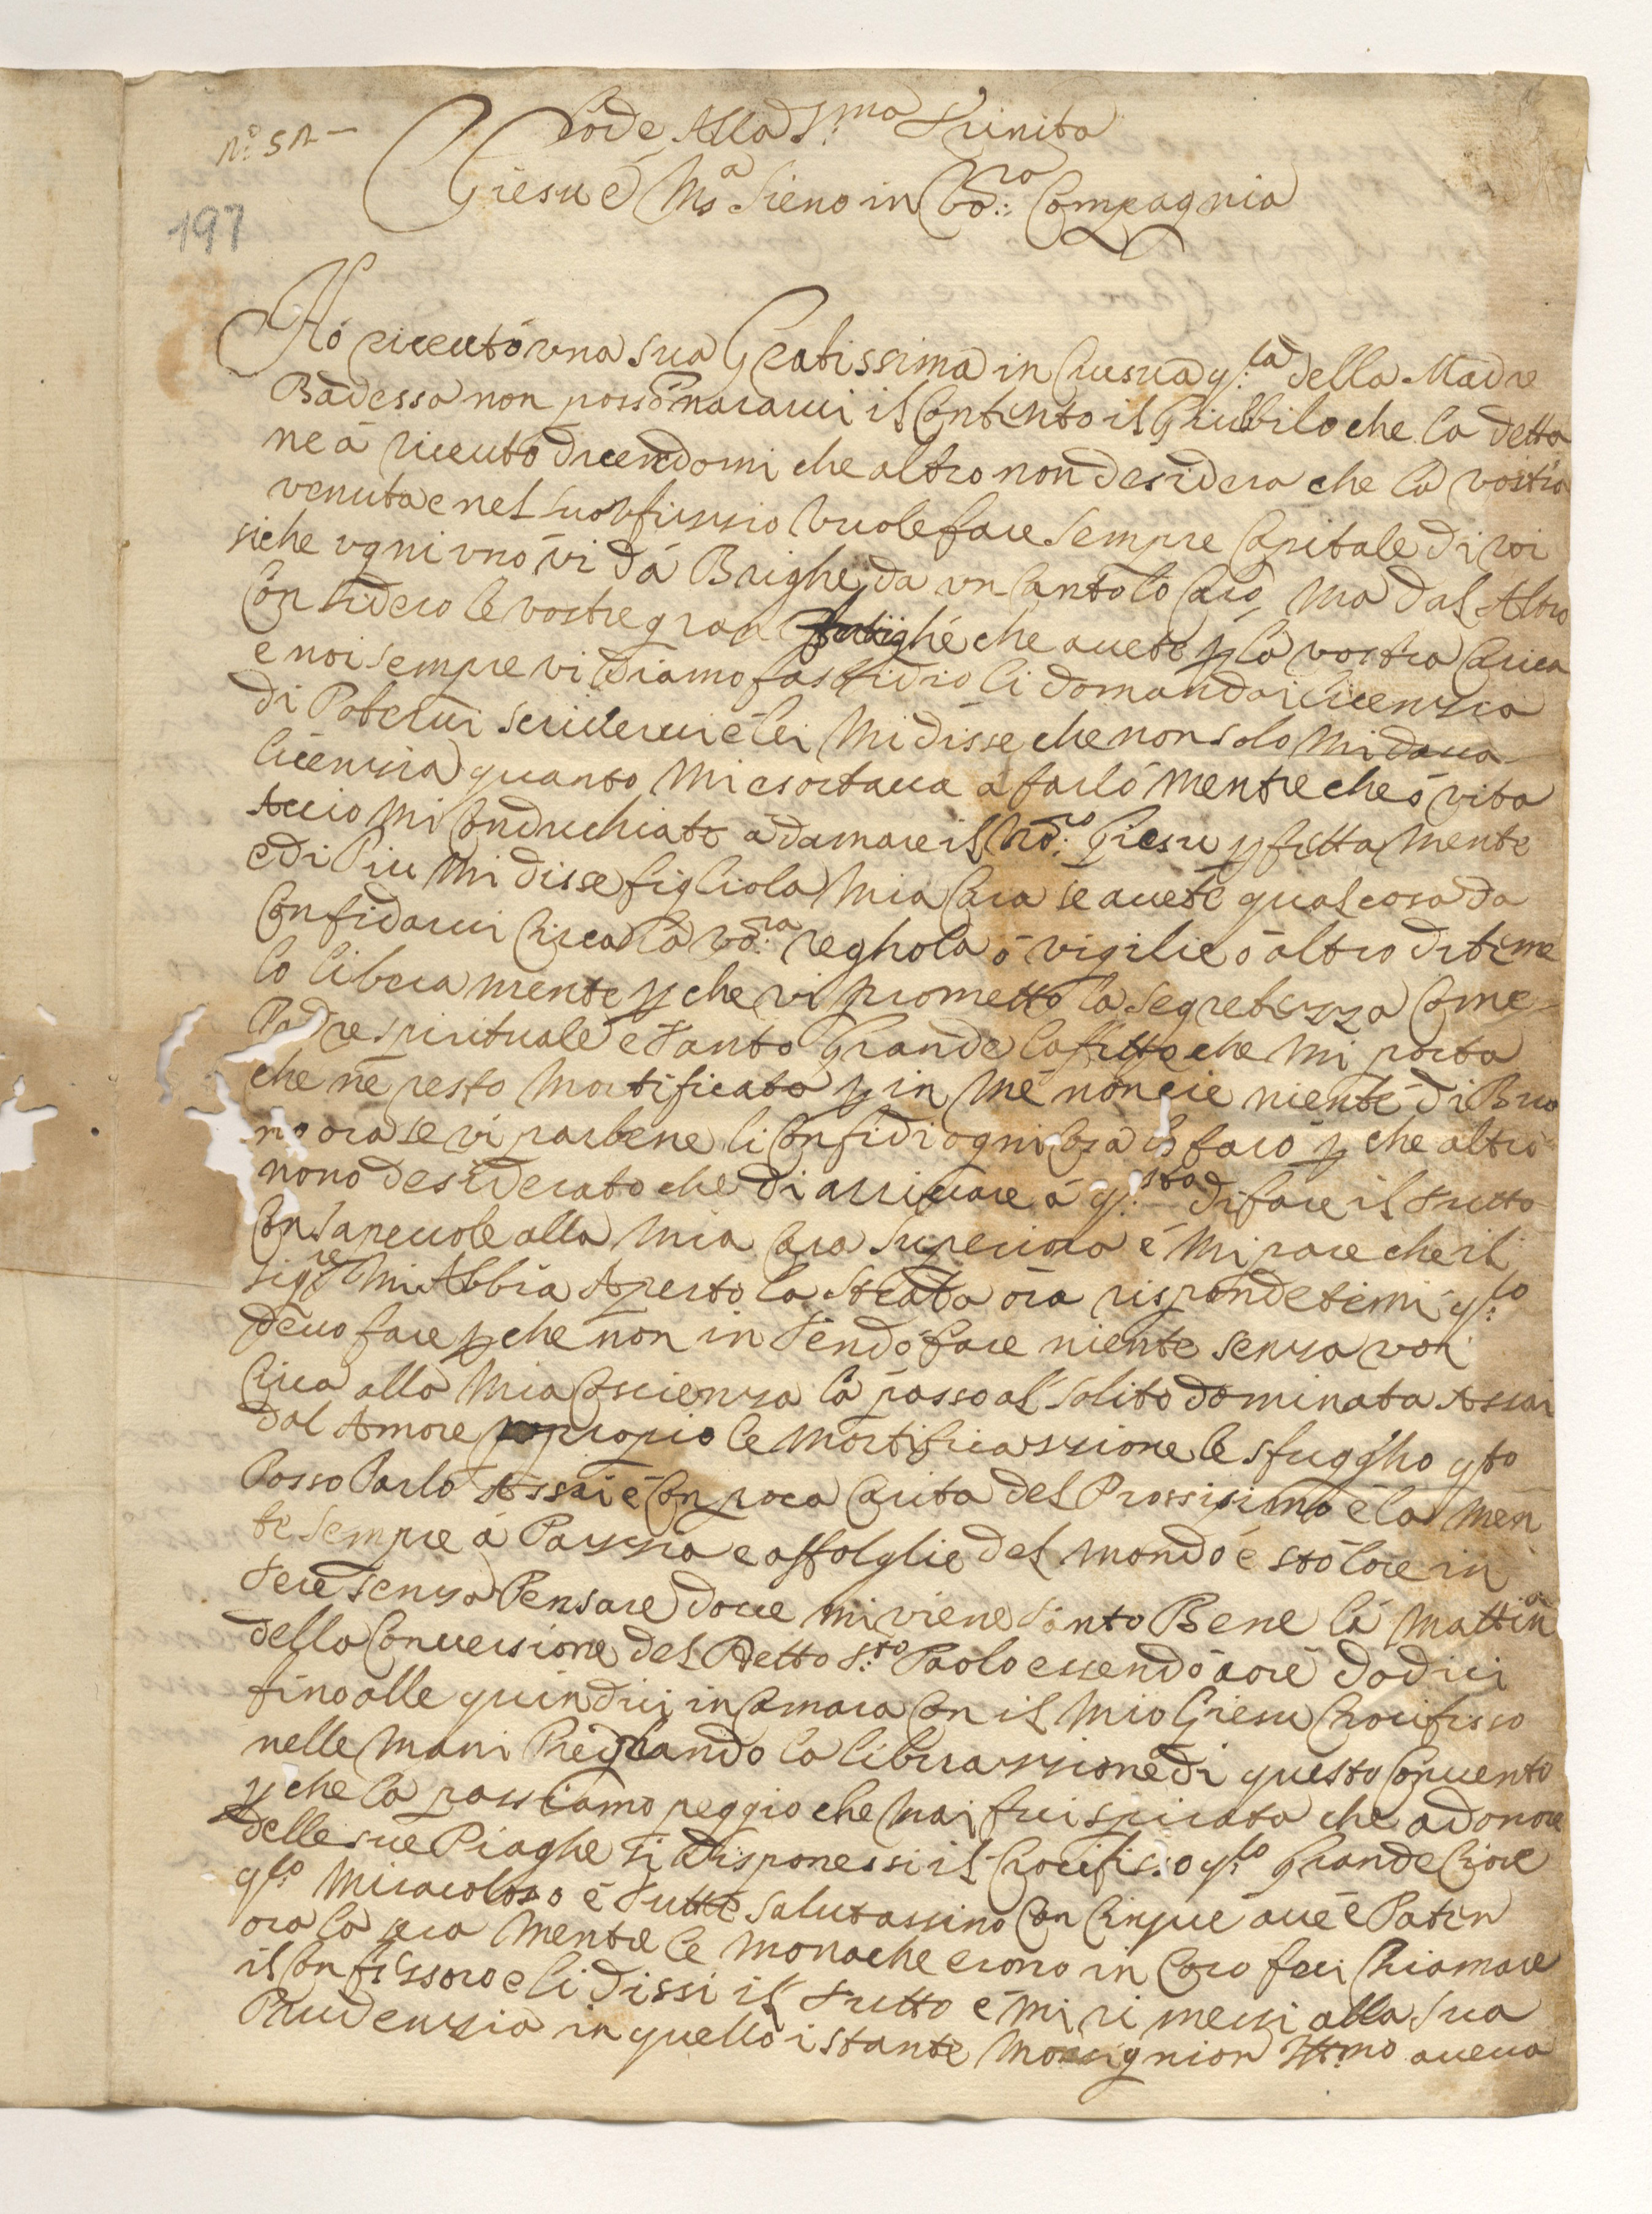 N.o 52
Lode Alla S.ma Trinita
197
Giesu é M.a Sieno in Vo.ra Compagnia
Hó riceuto una sua Gratissima in Clusua q.la della Madre
Badessa non posso nararui il Contento il Giubbilo che la detta
ne á riceuto dicendomi che altro non desidera che la vostra
venuta e nel suo vfiszio vuole fare sempre Capitale di voi
siche ogni uno vi dá Brighe da un Canto lo Caro ma dal Altro
Considero le vostre gran fatighe che auete p la vostra Carica
e noi sempre vi diamo fastidio li domandai licenzia
di Poterui scriuerui é lei Mi disse che non solo Mi daua
licenzia quanto Mi esortaua á farlo Mentre che ó vita
Accio Mi Conduchiate ad amare il No.ro Giesu p fetta Mente
e di Piu Mi disse figliola Mia Cara se auete qual cosa da
Confidarui Circa la vo.ra reghola ó vigilie ó altro dite me
lo libera mente p che vi prometto la segretezza Come
Padre spirituale é Tanto Grande lafetto che Mi porta
che ne resto Mortificata p in Me non cie niente di Buo
no ora se vi par bene li Confidi ogni Cosa lo faró p che altro
nono desiderato che di arriuare á q.sto di fare il tutto
Consapeuole alla Mia Cara Superiora é Mi pare che il
Sig.re Mi Abbia Aperto la Strada ora rispondetemi q.lo
deuo fare p che non in Tendo fare niente senza voi
Circa alla Mia Coscienza la passo al Solito dominata Assai
dal Amore proprio le Mortificazzione le sfuggho q.to
Posso Parlo Assai é Con poca Carita del Prossimo é la Men
te sempre á Pazzia e affolglie del Mondo é sto lore in
Tere senza Pensare doue mi viene Tanto Bene la Mattina
della Conuersione del Detto S.to Paolo essendo á ore dodici
fino alle quindici in Camara Con il Mio Giesu Crocifisso
nelle Mani Preghando la liberazzione di questo Conuento
p che la passiamo peggio che Mai fui spirata che ad onore
delle sue Piaghe si disponessi il Crocifisso q.lo Grande Cioe
q.lo Miracoloso é Tutte salutassino Con Cinque aue é Pater
ora la sera Mentre le Monache erono in Coro feci Chiamare
il Confessoro e li dissi il Tutto é Mi ri messi alla sua
Prudenzia in quello istante Monsignior Ill.mo aueua